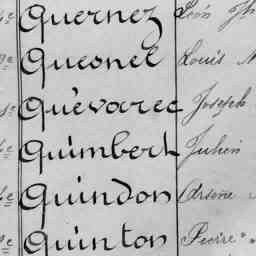 Quernez Léon
Quesnel Louis
Quévarec Joseph
Quimbert Julien
Quindon Arsène
Quinton Pierre